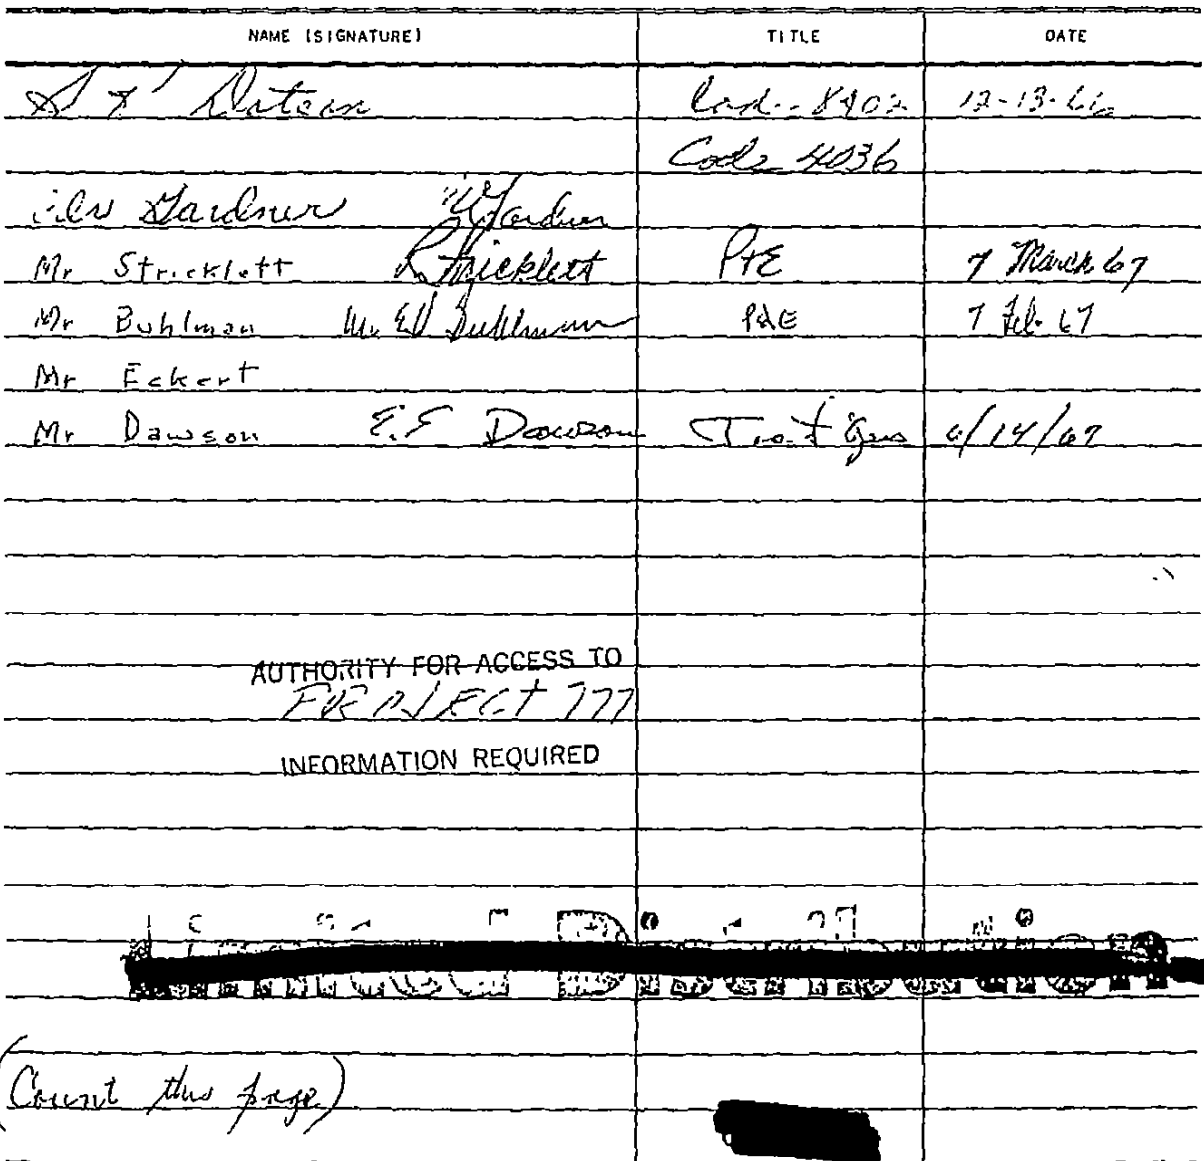 NAME (SIGNATURE) TITLE DATE
Code 8402 12-13-66
Code 4036
Gardner Gardner
Mr Stricklett Stricklett P&E 7 March 67
Mr Buhlman Mr Buhlman P&E 7 Feb 67
Mr Eckert
Mr Dawson E.E Dawson 6/14/67
AUTHORITY FOR ACCESS TO
777
INFORMATION REQUIRED
(Count this page)